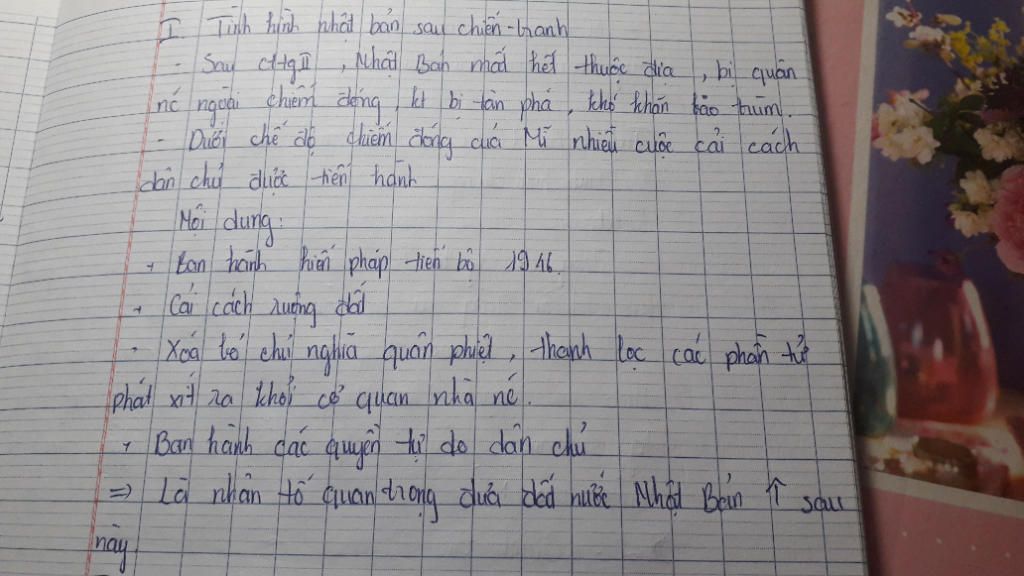 I. Tình hình nhật bản sau chiến tranh
- Sau cttgII, Nhật Bản mất hết thuộc địa, bị quân
nc ngoài chiếm đóng, kt bị tàn phá, khó khăn bao trùm.
- Dưới chế độ chiếm đóng của Mĩ nhiều cuộc cải cách
dân chủ được tiến hành
Nội dung:
+ Ban hành hiến pháp tiến bộ 1946.
+ Cải cách ruộng đất
+ Xoá bỏ chủ nghĩa quân phiệt, thanh lọc các phần tử
phát xít ra khỏi cơ quan nhà nc.
+ Ban hành các quyền tự do dân chủ
=> Là nhân tố quan trọng đưa đất nước Nhật Bản ↑ sau
này